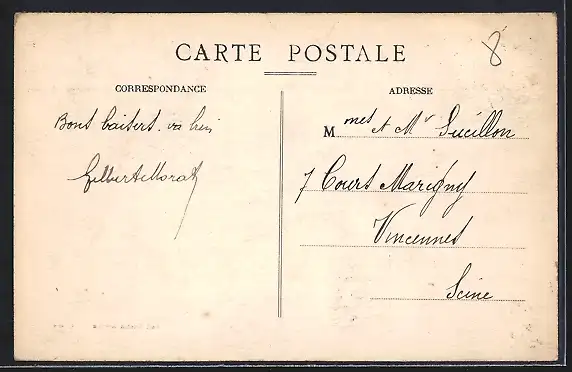 CARTE POSTALE
8
CORRESPONDANCE
ADRESSE
Bons baisers
Gilberte Morat
M mes et Mr Lucillon
7 Cours Marigny
Vincennes
Seine